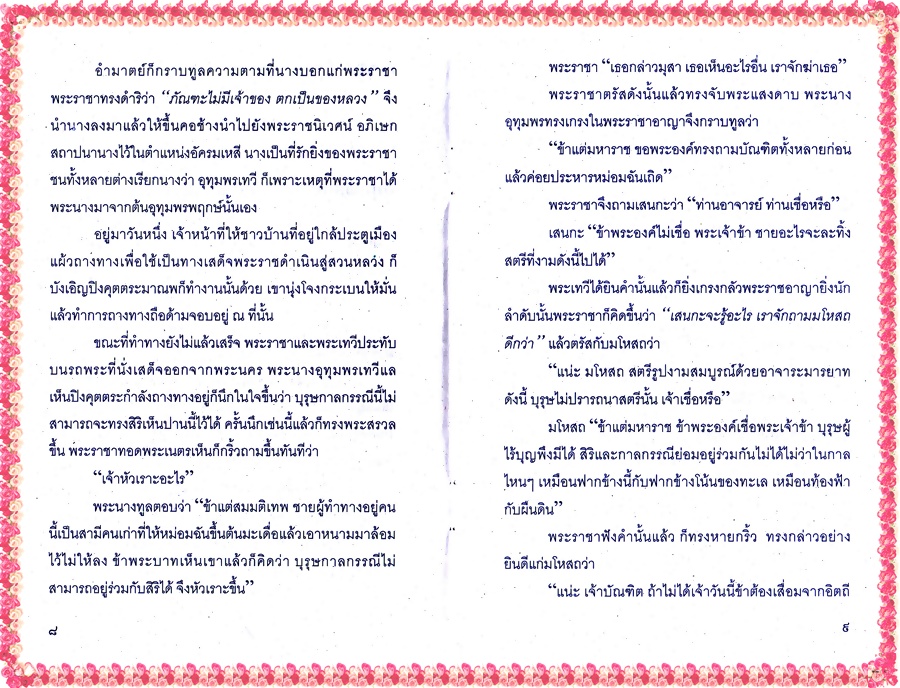 อำมาตย์ก็กราบทูลความตามที่นางบอกแก่พระราชา
พระราชาทรงดำริว่า “ภัณฑะไม่มีเจ้าของ ตกเป็นของหลวง” จึง
นำนางลงมาแล้วให้ขึ้นคอช้างนำไปยังพระราชนิเวศน์ อภิเษก
สถาปนานางไว้ในตำแหน่งอัครมเหสี นางเป็นที่รักยิ่งของพระราชา
ชนทั้งหลายต่างเรียกนางว่า อุทุมพรเทวี ก็เพราะเหตุที่พระราชาได้
พระนางมาจากต้นอุทุมพรพฤกษ์นั้นเอง
อยู่มาวันหนึ่ง เจ้าหน้าที่ให้ชาวบ้านที่อยู่ใกล้ประตูเมือง
แผ้วถางทางเพื่อใช้เป็นทางเสด็จพระราชดำเนินสู่สวนหลวง ก็
บังเอิญปิงคุตตระมาณพก็ทำงานนั้นด้วย เขานุ่งโจงกระเบนให้มั่น
แล้วทำการถางทางถือด้ามจอบอยู่ ณ ที่นั้น
ขณะที่ทำทางยังไม่แล้วเสร็จ พระราชาและพระเทวีประทับ
บนรถพระที่นั่งเสด็จออกจากพระนคร พระนางอุทุมพรเทวีแล
เห็นปิงคุตตระกำลังถางทางอยู่ก็นึกในใจขึ้นว่า บุรุษกาลกรรณีนี้ไม่
สามารถจะทรงสิริเห็นปานนี้ไว้ได้ ครั้นนึกเช่นนี้แล้วก็ทรงพระสรวล
ขึ้น พระราชาทอดพระเนตรเห็นก็กริ้วถามขึ้นทันทีว่า
“เจ้าหัวเราะอะไร”
พระนางทูลตอบว่า “ข้าแต่สมมติเทพ ชายผู้ทำทางอยู่คน
นี้เป็นสามีคนเก่าที่ให้หม่อมฉันขึ้นต้นมะเดื่อแล้วเอาหนามมาล้อม
ไว้ไม่ให้ลง ข้าพระบาทเห็นเขาแล้วก็คิดว่า บุรุษกาลกรรณีไม่
สามารถอยู่ร่วมกับสิริได้ จึงหัวเราะขึ้น”
๘
พระราชา “เธอกล่าวมุสา เธอเห็นอะไรอื่น เราจักฆ่าเธอ”
พระราชาตรัสดังนั้นแล้วทรงจับพระแสงดาบ พระนาง
อุทุมพรทรงเกรงในพระราชอาญาจึงกราบทูลว่า
“ข้าแต่มหาราช ขอพระองค์ทรงถามบัณฑิตทั้งหลายก่อน
แล้วค่อยประหารหม่อมฉันเถิด”
พระราชาจึงถามเสนกะว่า “ท่านอาจารย์ ท่านเชื่อหรือ”
เสนกะ “ข้าพระองค์ไม่เชื่อ พระเจ้าข้า ชายอะไรจะละทิ้ง
สตรีที่งามดังนี้ไปได้”
พระเทวีได้ยินคำนั้นแล้วก็ยิ่งเกรงกลัวพระราชอาญายิ่งนัก
ลำดับนั้นพระราชาก็คิดขึ้นว่า “เสนกะจะรู้อะไร เราจักถามมโหสถ
ดีกว่า” แล้วตรัสกับมโหสถว่า
“แน่ะ มโหสถ สตรีรูปงามสมบูรณ์ด้วยอาจาระมารยาท
ดังนี้ บุรุษไม่ปรารถนาสตรีนั้น เจ้าเชื่อหรือ”
มโหสถ “ข้าแต่มหาราช ข้าพระองค์เชื่อพระเจ้าข้า บุรุษผู้
ไร้บุญพึงมีได้ สิริและกาลกรรณีย่อมอยู่ร่วมกันไม่ได้ไม่ว่าในกาล
ไหนๆ เหมือนฟากข้างนี้กับฟากข้างโน้นของทะเล เหมือนท้องฟ้า
กับผืนดิน”
พระราชาฟังคำนั้นแล้ว ก็ทรงหายกริ้ว ทรงกล่าวอย่าง
ยินดีแก่มโหสถว่า
“แน่ะ เจ้าบัณฑิต ถ้าไม่ได้เจ้าวันนี้ข้าต้องเสื่อมจากอิตถี
๙